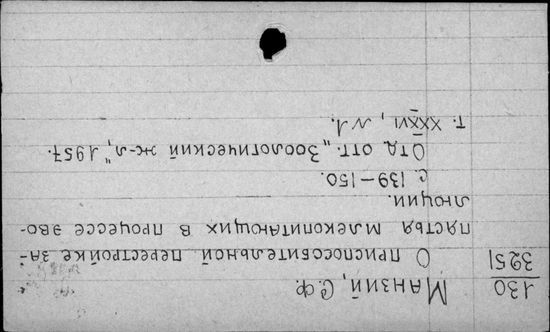 130
3251
Манзий, С.Ф.
О приспособительной перестройке за-
пястья млекопитающих в процессе эво-
люции.
с. 139-150.
Отд. отт. „Зоологический ж-л", 1957.
т. XXXVI, №1.